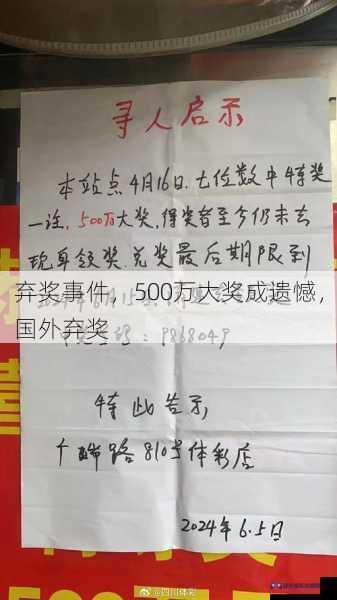 寻人启示
本站点4月16日.七位数中特奖
一注,500万大奖,得奖者至今仍未去
现身领奖.兑奖最后期限到
弃奖事件，500万大奖成遗憾，
国外弃奖
9868049
特此告示
路810号体彩店
2024年6.5日
@四川体彩